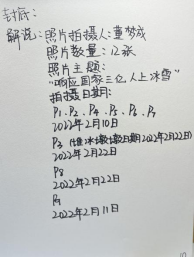 封底:
解说: 照片拍摄人: 董梦成
照片数量: 12张
照片主题:
"响应国家三亿人上冰雪"
拍摄日期:
P1、P2、P4、P5、P6、P7
2022年2月10日
P3
2022年2月22日
P8
2022年2月22日
P9
2022年2月11日